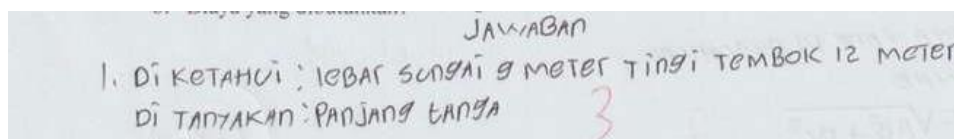 JAWABAN
1. Di KETAHUi : lEBAr SUngAi 9 METEr Tingi TEMBOK 12 METEr
Di TANYAKAN : PAnjAng tAngA
3